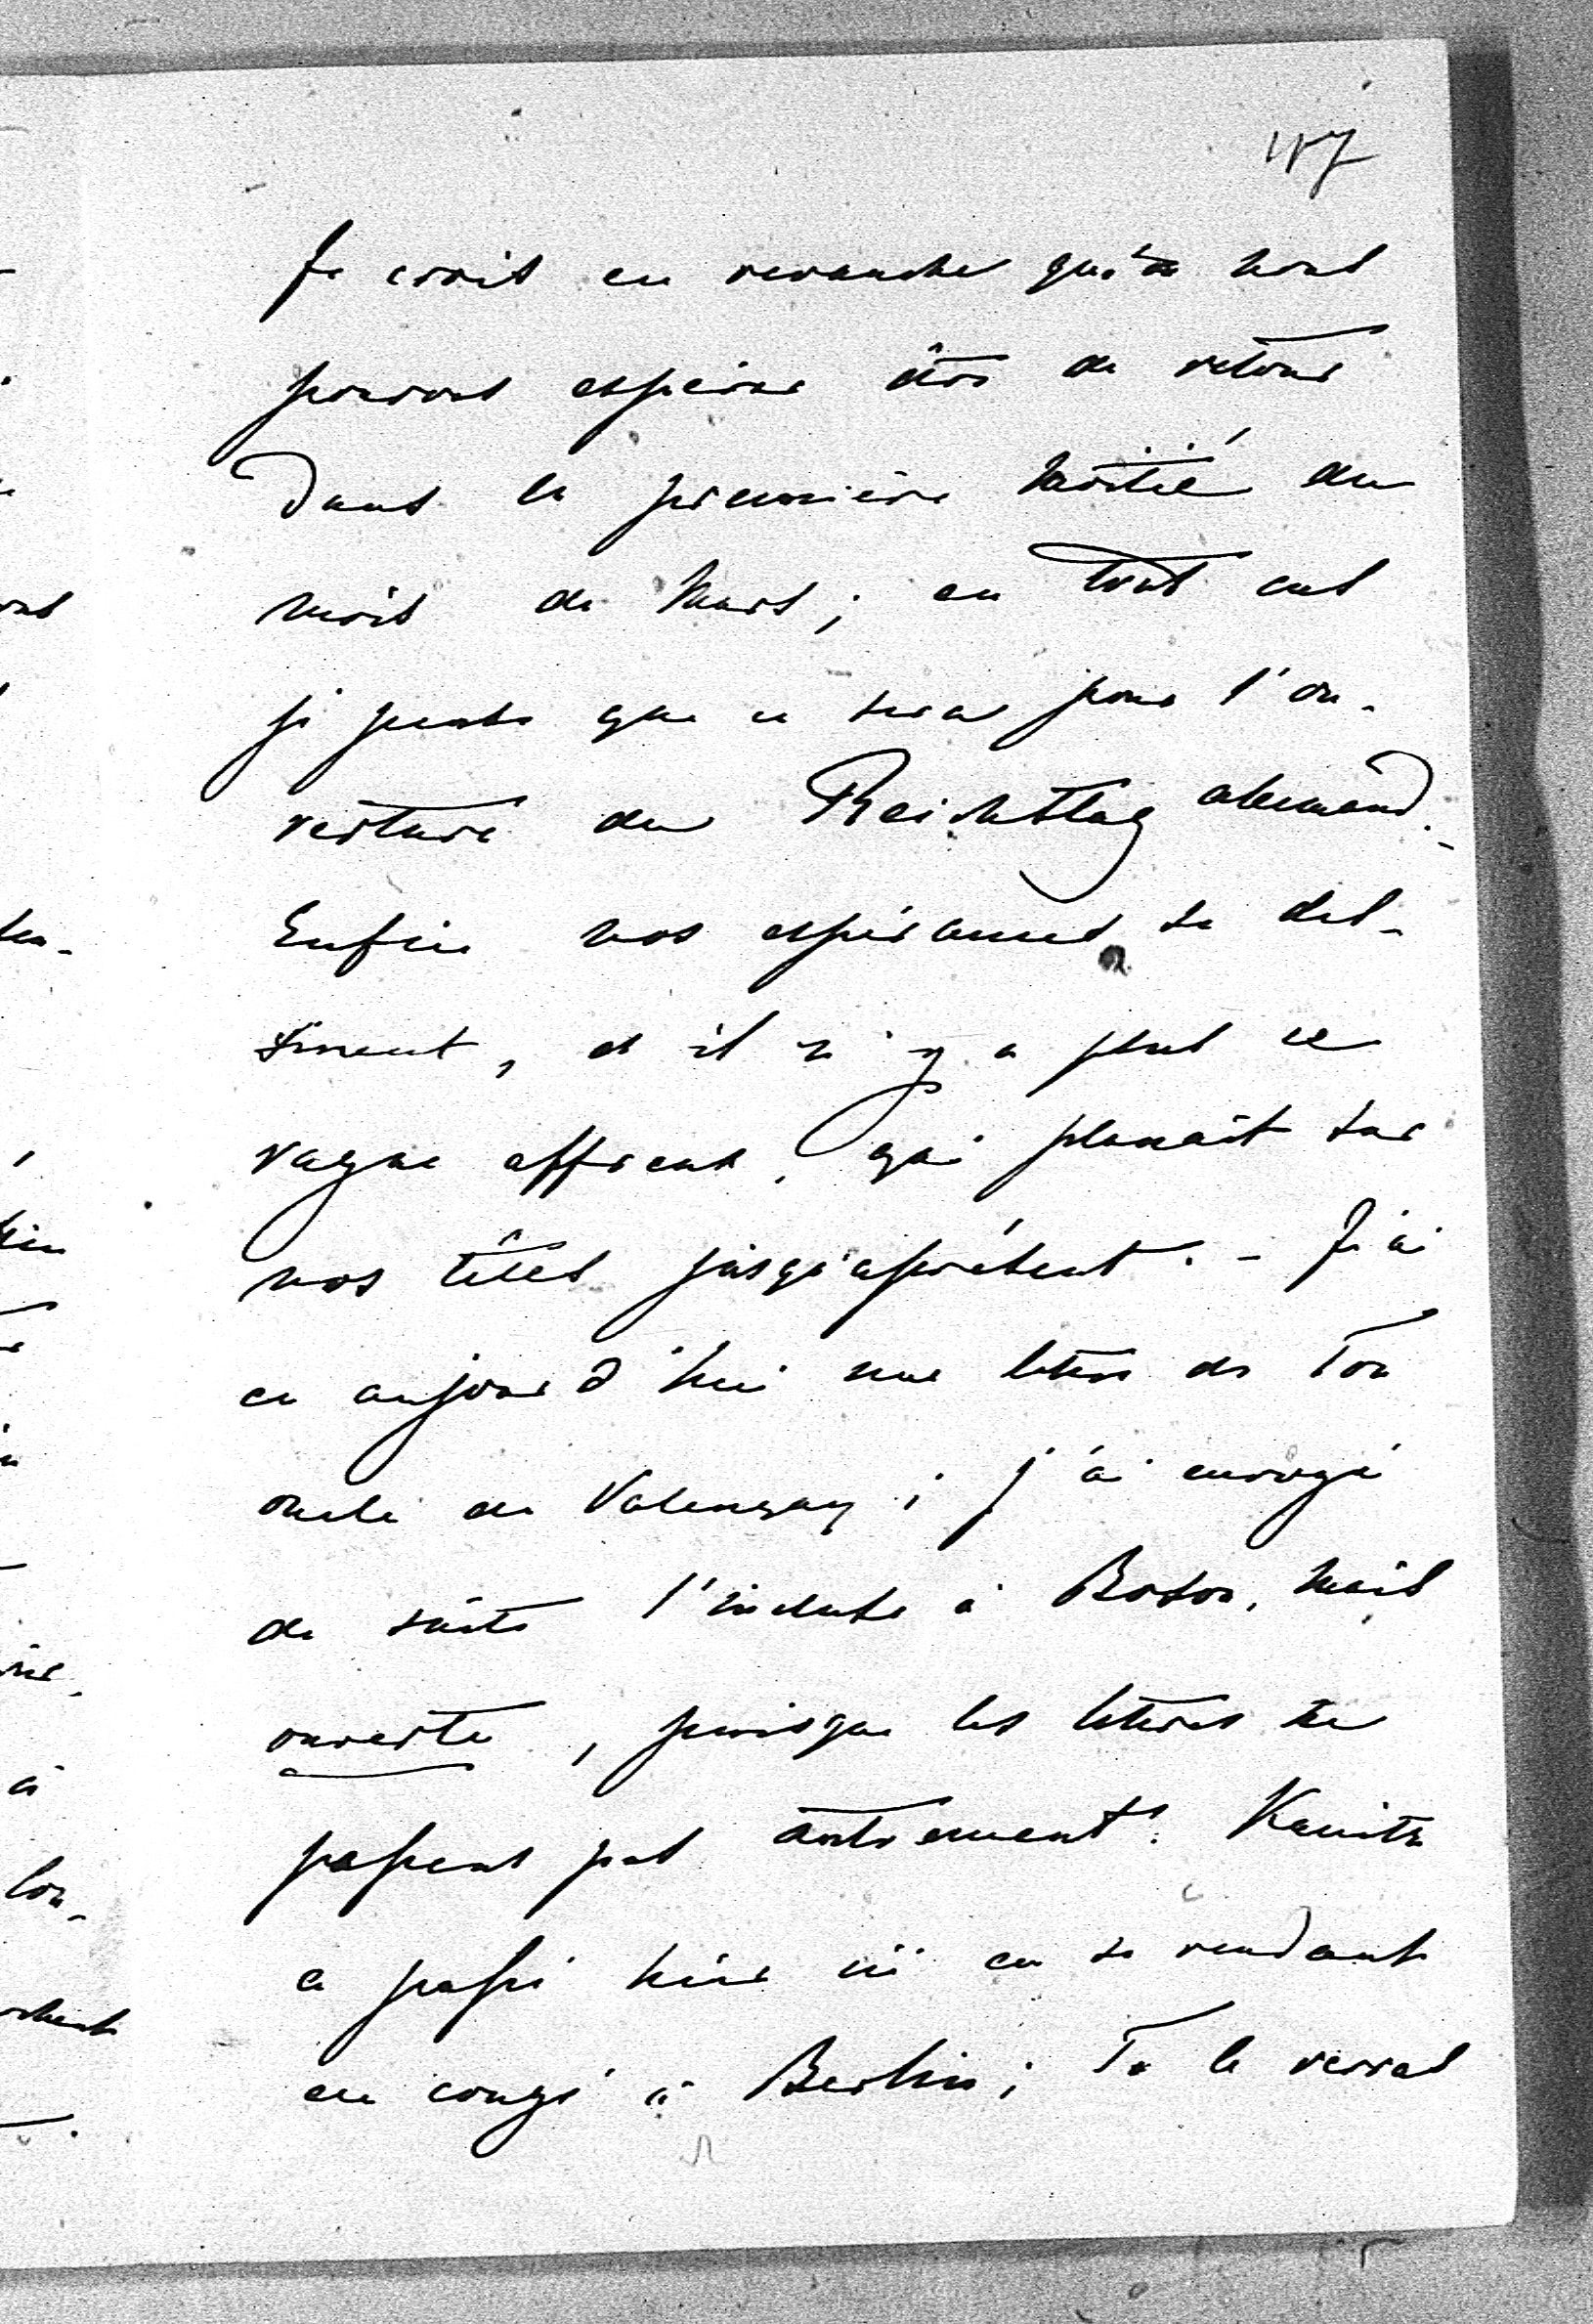 187
Je crois en revanche que nous
pouvons espérer être de retour
dans la première moitié du
mois de Mars; en tout cas
je pense que ce sera pour l'ou-
verture du Reichstag allemand.-
Enfin nos espérances se des-
sinent, et il n'y a plus ce
vague affreux, qui planait sur
nos têtes jusqu'aprésent. - J'ai
eu aujourd'hui une lettre de Ton
oncle de Valençay; j'ai envoyé
de suite l'incluse à Boson, mais
ouverte, puisque les lettres ne
passent pas autrement. Kanitz
a passé hier ici en se rendant
en congé à Berlin; Tu le verras